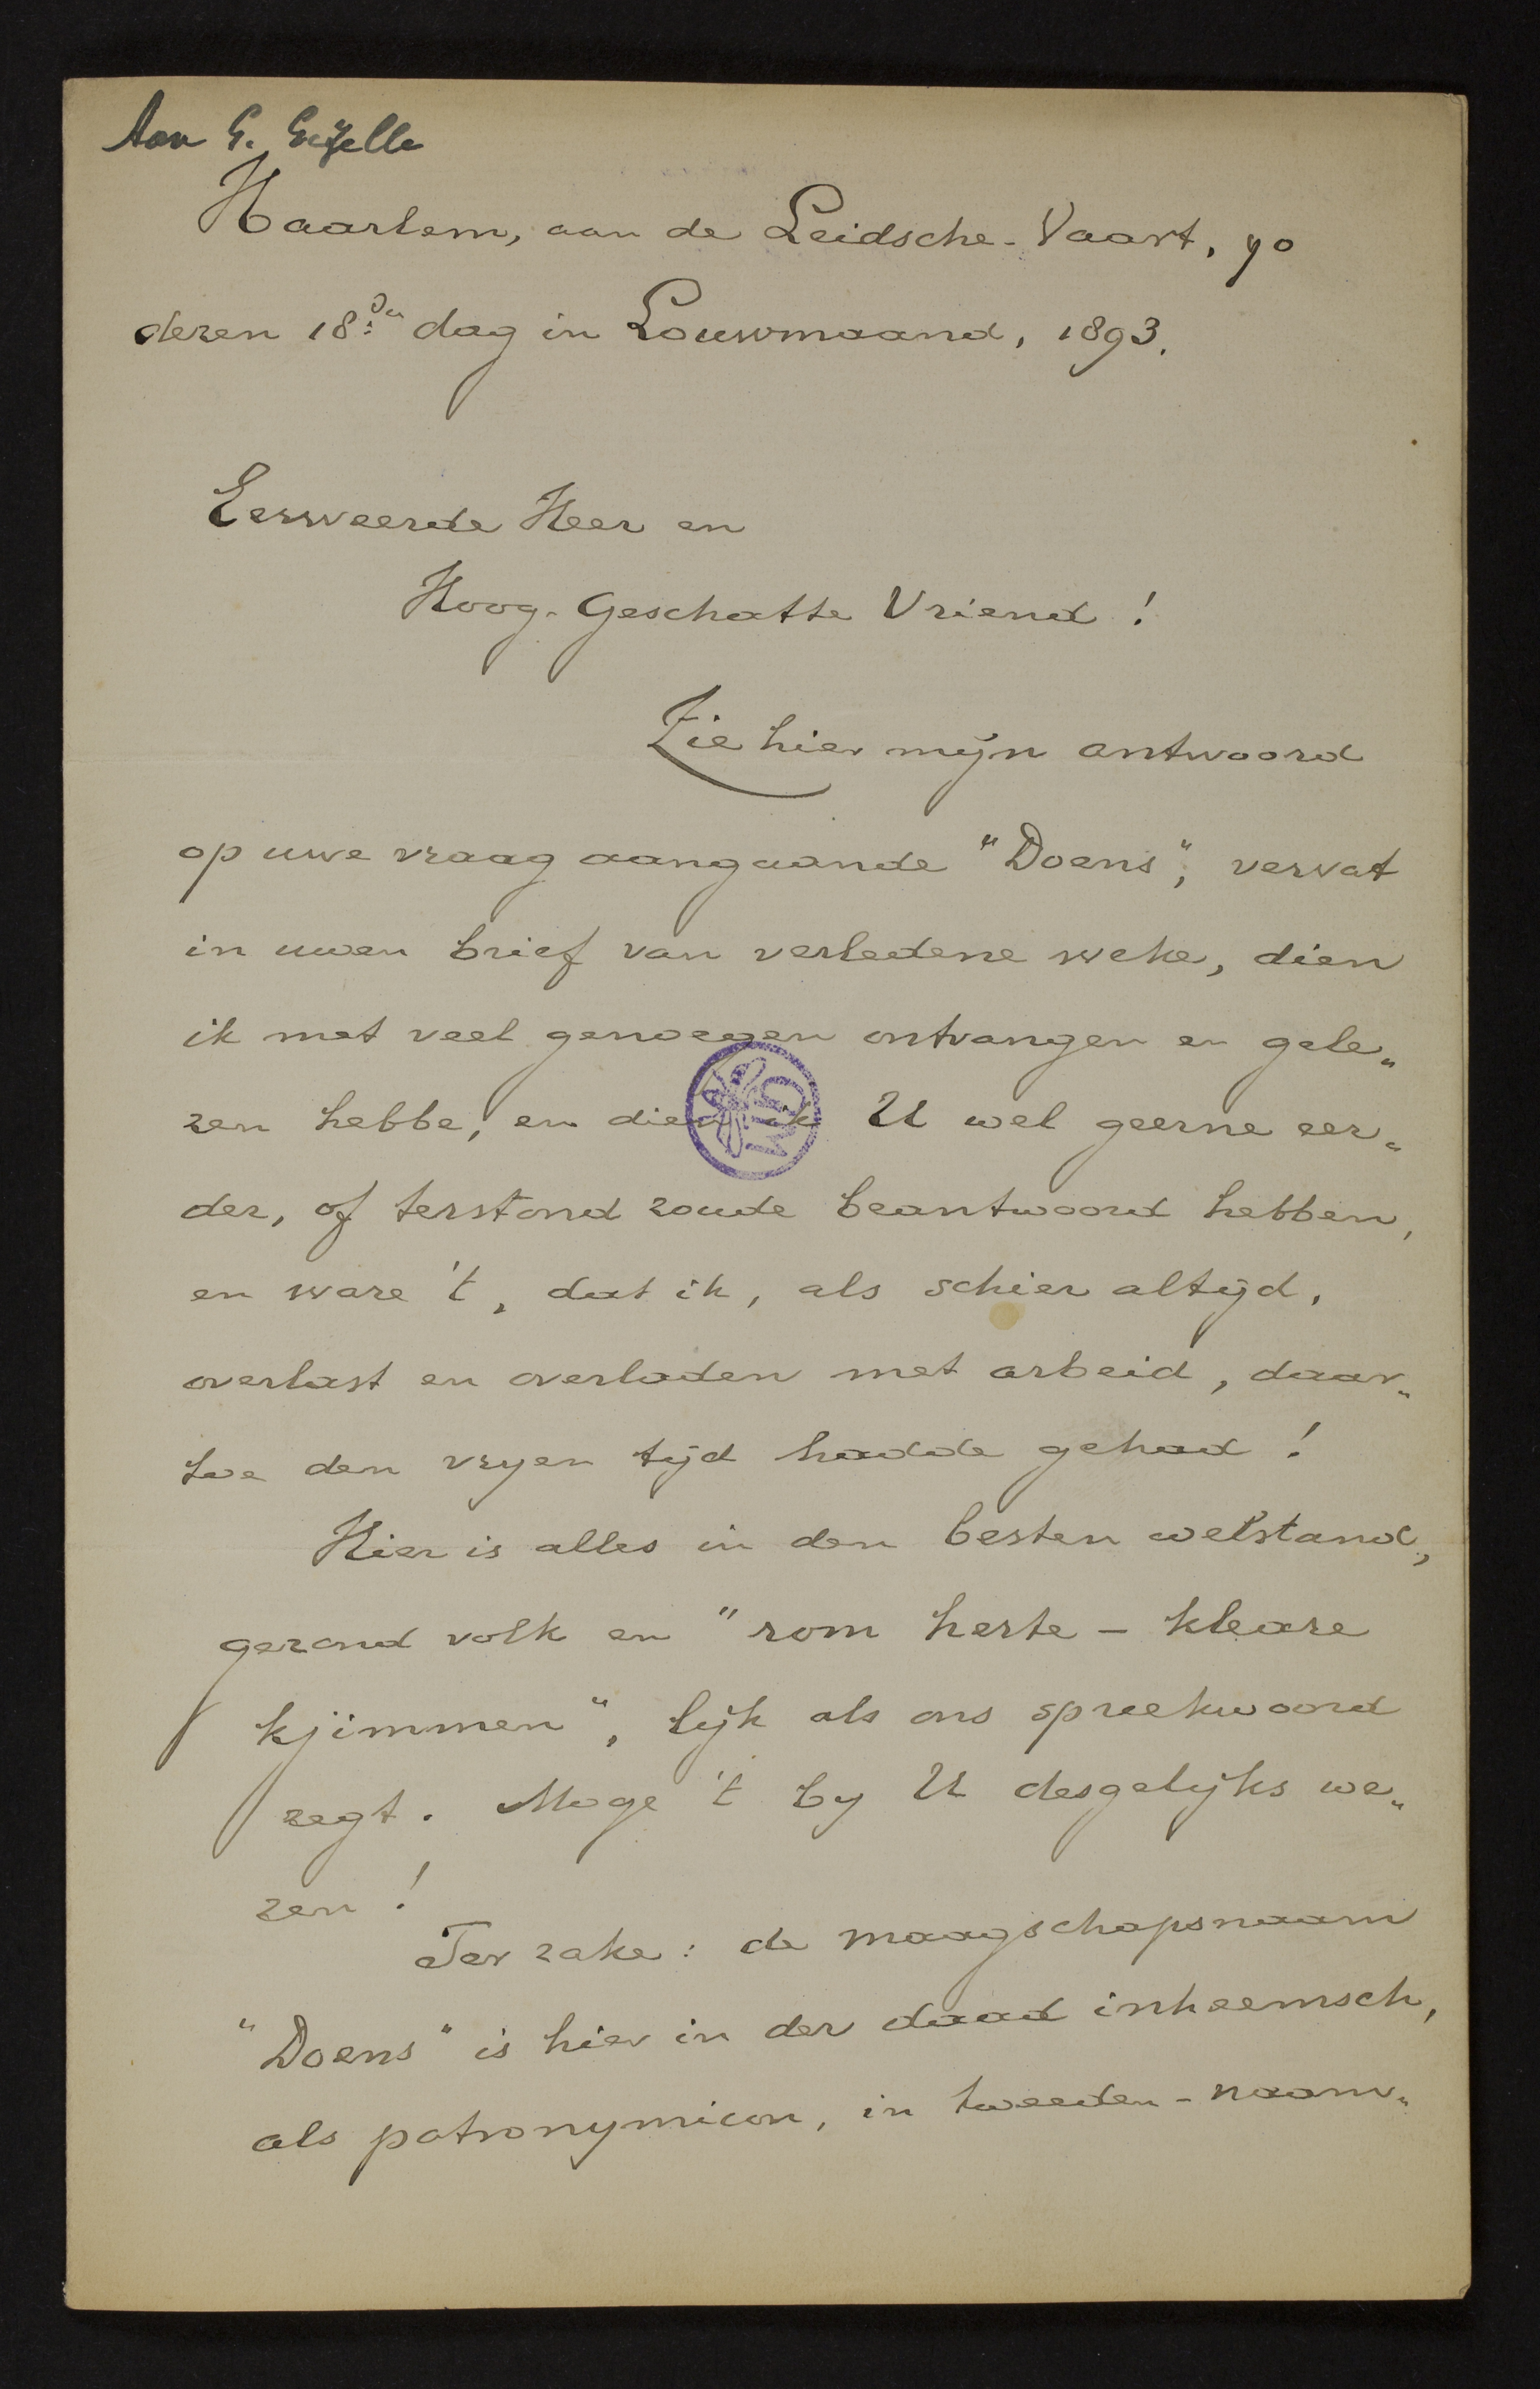 Aan G. Gezelle
Haarlem, aan de Leidsche-Vaart, 90
dezen 18den dag in Louwmaand, 1893.
Eerweerde Heer en
Hoog-Geschatte Vriend!
Zie hier mijn antwoord
op uwe vraag aangaande "Doens", vervat
in uwen brief van verledene weke, dien
ik met veel genoegen ontvangen en gele„
zen hebbe, en dien ik U wel geerne eer„
der, of terstond zoude beantwoord hebben,
en ware 't, dat ik, als schier altijd,
overlast en overladen met arbeid, daar„
toe den vryen tijd hadde gehad!
Hier is alles in den besten welstand,
gezond volk en "rom herte - kleare
kjimmen", lijk als ons spreekwoord
zegt. Moge 't by U desgelijks we„
zen!
Ter zake: de maagschapsnaam
"Doens" is hier in der daad inheemsch,
als patronymicon, in tweeden-naam„